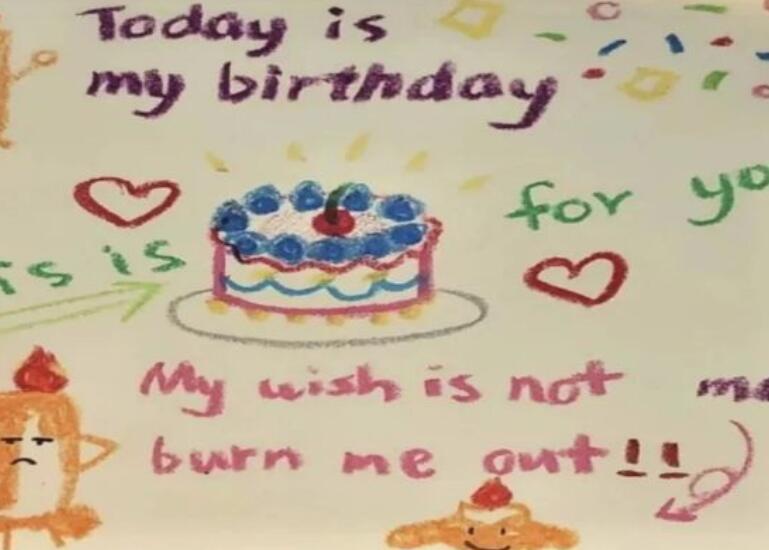 Today is
my birthday
for yo
is is
My wish is not
burn me out!!